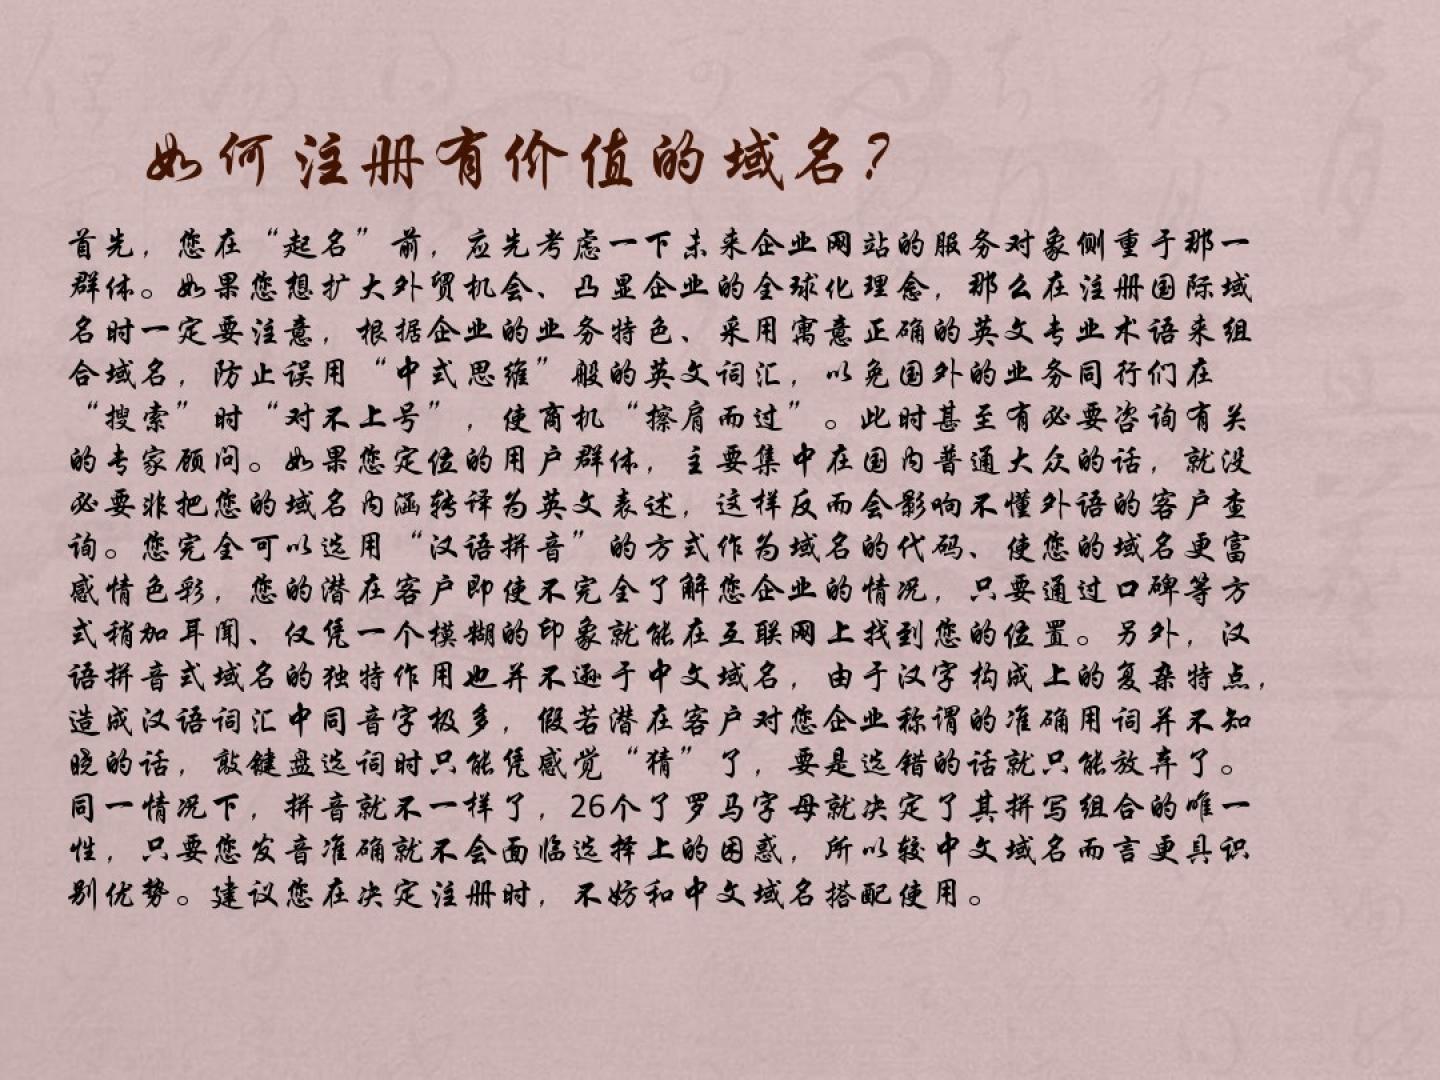 如何注册有价值的域名？
首先，您在“起名”前，应先考虑一下未来企业网站的服务对象侧重于那一
群体。如果您想扩大外贸机会、凸显企业的全球化理念，那么在注册国际域
名时一定要注意，根据企业的业务特色、采用寓意正确的英文专业术语来组
合域名，防止误用“中式思维”般的英文词汇，以免国外的业务同行们在
“搜索”时“对不上号”，使商机“擦肩而过”。此时甚至有必要咨询有关
的专家顾问。如果您定位的用户群体，主要集中在国内普通大众的话，就没
必要非把您的域名内涵转译为英文表述，这样反而会影响不懂外语的客户查
询。您完全可以选用“汉语拼音”的方式作为域名的代码、使您的域名更富
感情色彩，您的潜在客户即使不完全了解您企业的情况，只要通过口碑等方
式稍加耳闻、仅凭一个模糊的印象就能在互联网上找到您的位置。另外，汉
语拼音式域名的独特作用也并不逊于中文域名，由于汉字构成上的复杂特点，
造成汉语词汇中同音字极多，假若潜在客户对您企业称谓的准确用词并不知
晓的话，敲键盘选词时只能凭感觉“猜”了，要是选错的话就只能放弃了。
同一情况下，拼音就不一样了，26个了罗马字母就决定了其拼写组合的唯一
性，只要您发音准确就不会面临选择上的困惑，所以较中文域名而言更具识
别优势。建议您在决定注册时，不妨和中文域名搭配使用。